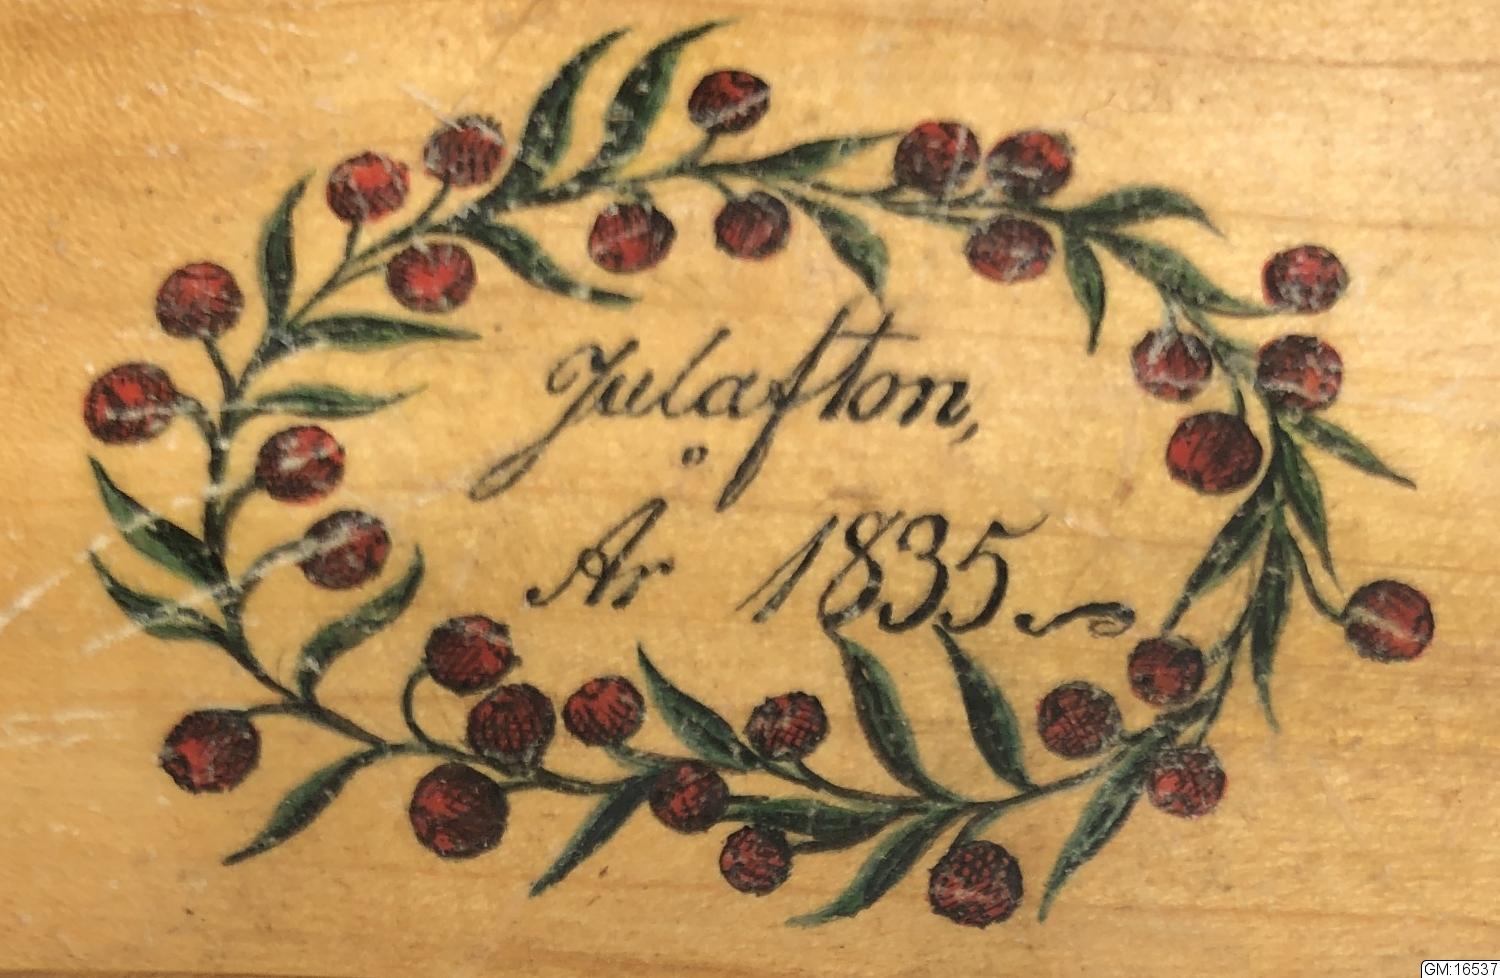 Julafton,
År 1835
GM:16537